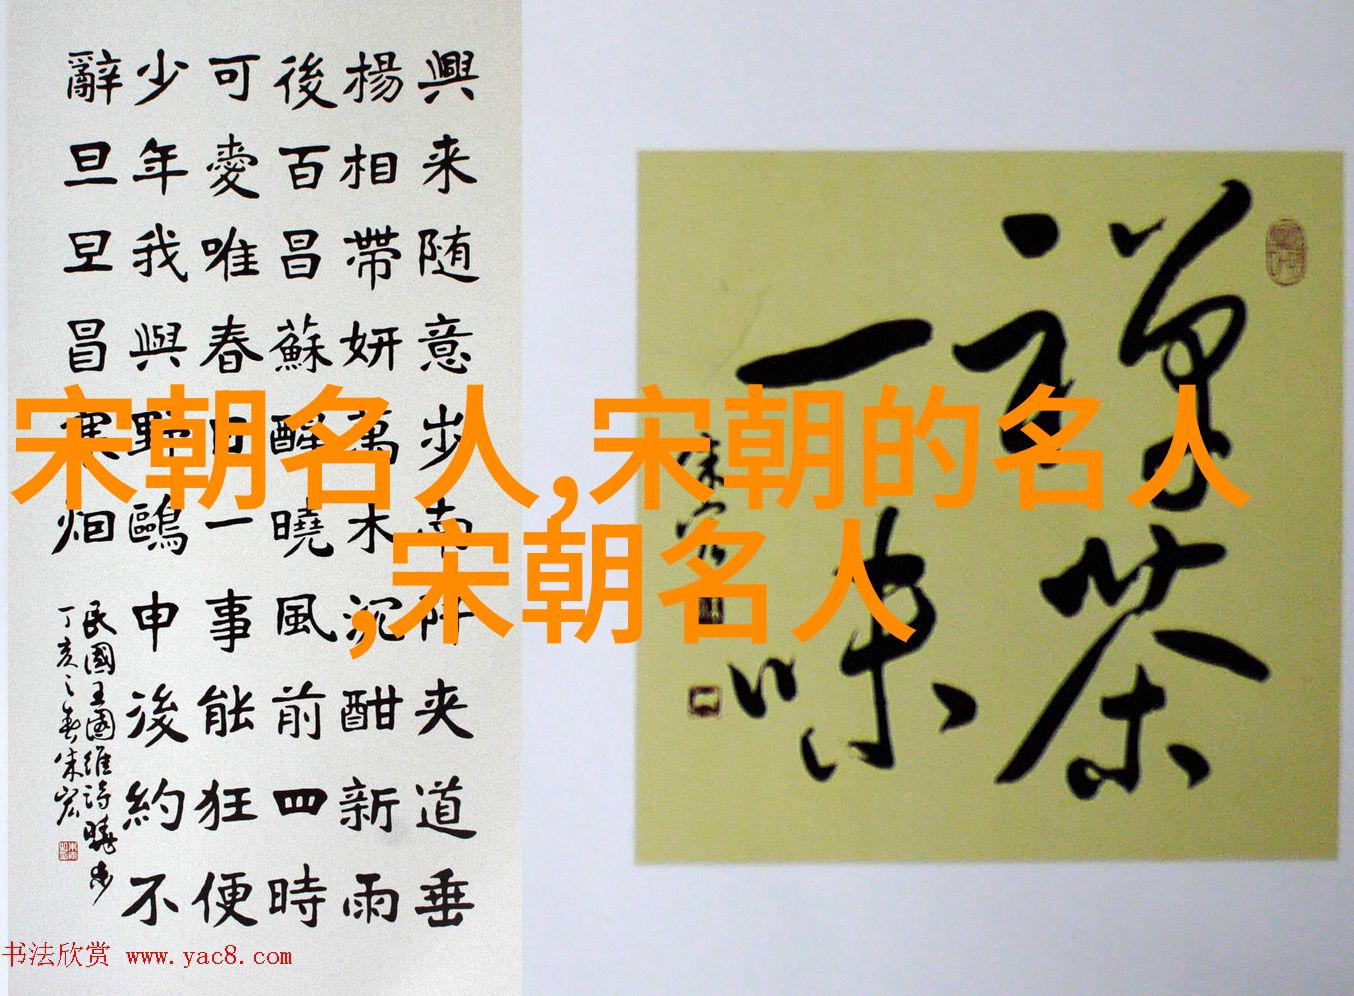 興来随意步南阡夹道垂
楊相帶妍萬木沉酣新雨
後百昌蘇醒曉風前四時
可愛唯春日一事能狂便
少年我與野鷗申後約不
辭旦旦冒寒烟
民國王國維詩曉步
丁亥之春朱宏
禪茶
一味
朱宏
宋朝名人,宋朝的名人
,宋朝名人
书法欣赏 www.yac8.com